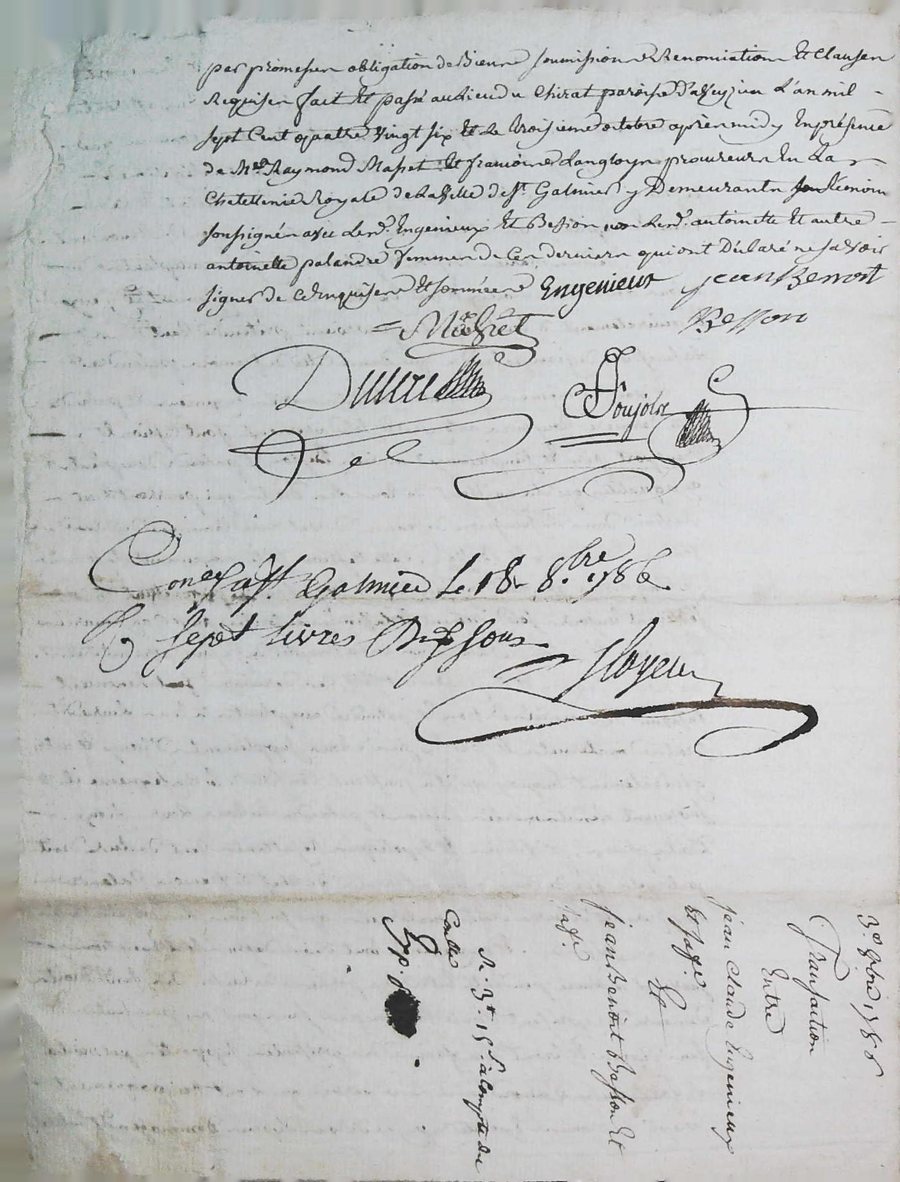 par promesses obligation de Biens soumissions Renonciations Et Clauses
Requises fait Et passé au lieu du Chirat paroisse d'aveyzieu L'an mil
sept Cent quatre vingt six Et Le troisieme octobre apres midy En présence
de Mes. Raymond Masset Et francois Langloys procureurs En La
Chatellenie Royale de La Ville de St. Galmier y Demeurants
soussignés avec Les d. Engenieux Et Besson non Les d. antoinette Et autre
antoinette palandre femmes de Ces derniers qui ont Déclaré ne savoir
signer de ce Enquises Et sommées Engenieux jean Benoit
Besson
Conlé a St. Galmier Le 18. 8.bre 1786
R sept livres Dix sous
3e 8bre 1786
Transaction
Entre
jean Claude Engenieux
Et sa fe.
Et
jean Benoit Besson Et
sa fe.
R. 3lt. 15s. a Compte du
Conlle